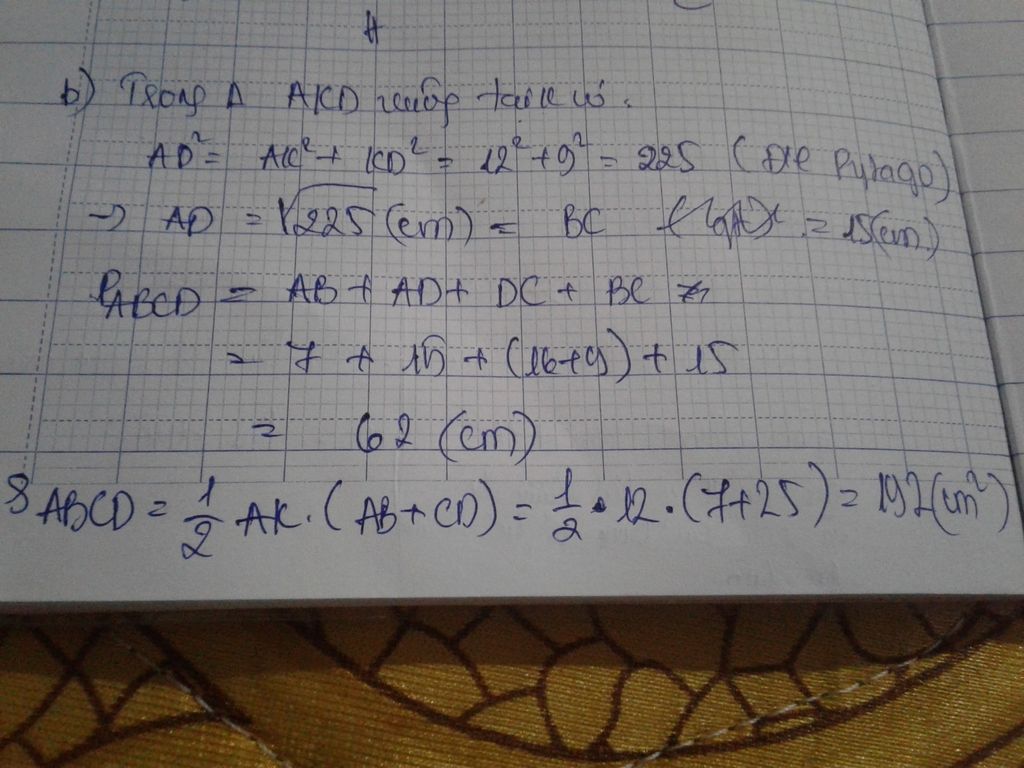 A
b) Trong Δ AKD vuông tại K có:
AD² = AK² + KD² = 12² + 9² = 225 (ĐL Pytago)
→ AD = √225 (cm) = BC = 15(cm)
P ABCD = AB + AD + DC + BC
= 7 + 15 + (16+9) + 15
= 62 (cm)
S ABCD = 1/2 AK. (AB + CD) = 1/2 . 12 . (7+25) = 192 (cm²)